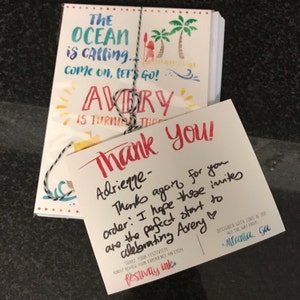 THE
OCEAN
IS CALLING...
COME ON, LET'S GO!
AVERY
IS TURNING THREE
Thank You!
Adrienne-
Thanks again for your
order! I hope these invites
are the perfect start to
celebrating Avery ♡
festivity ink
Atlanta, GA